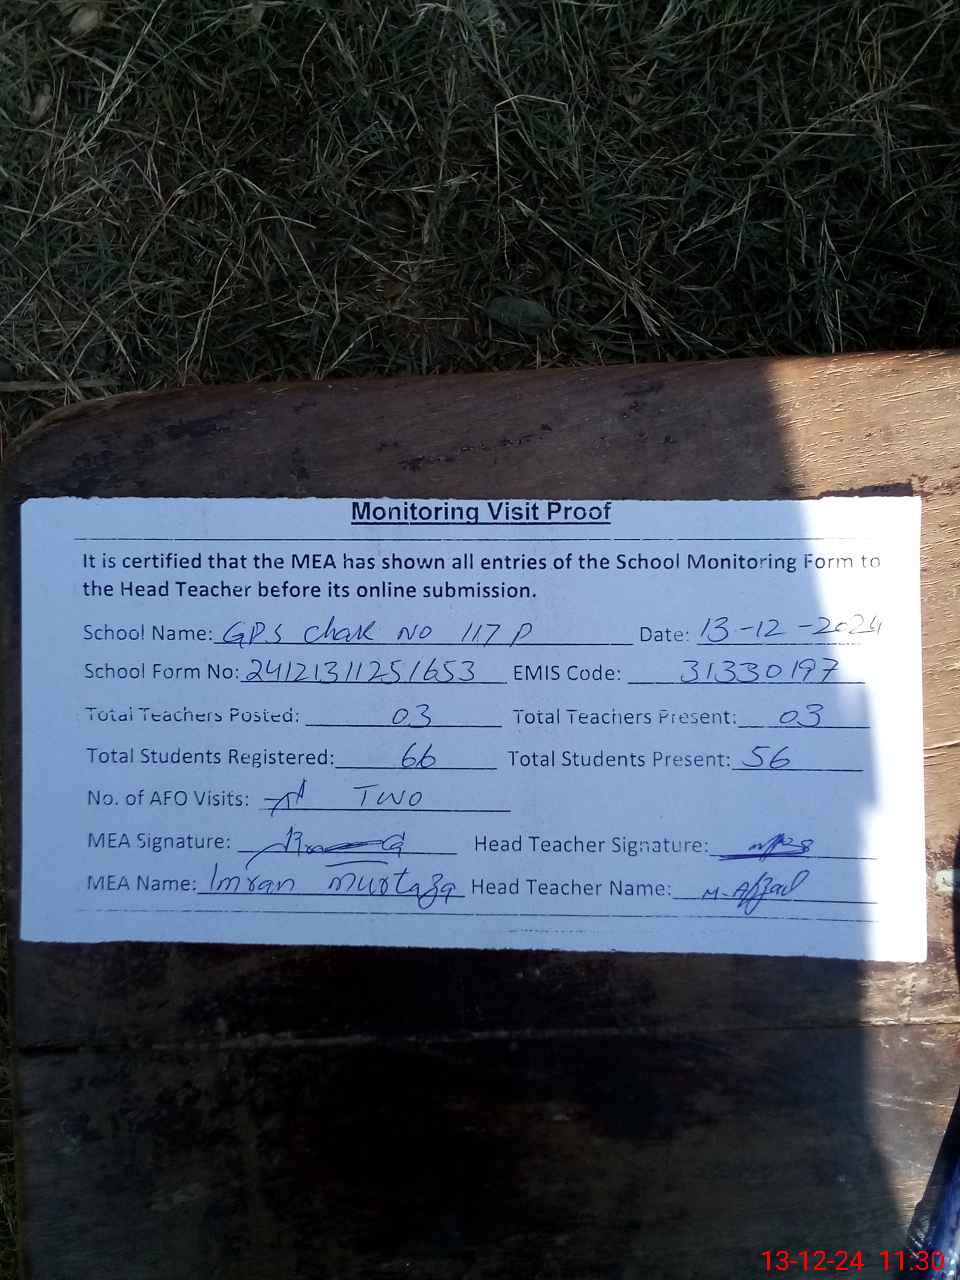 Monitoring Visit Proof
It is certified that the MEA has shown all entries of the School Monitoring Form to
the Head Teacher before its online submission.
School Name: GPS Chak NO 117 P Date: 13-12-2024
School Form No: 24121311251653 EMIS Code: 31330197
Total Teachers Posted: 03 Total Teachers Present: 03
Total Students Registered: 66 Total Students Present: 56
No. of AFO Visits: TWO
MEA Signature: Head Teacher Signature:
MEA Name: Imran Murtaza Head Teacher Name: M. Afzal
13-12-24 11:30